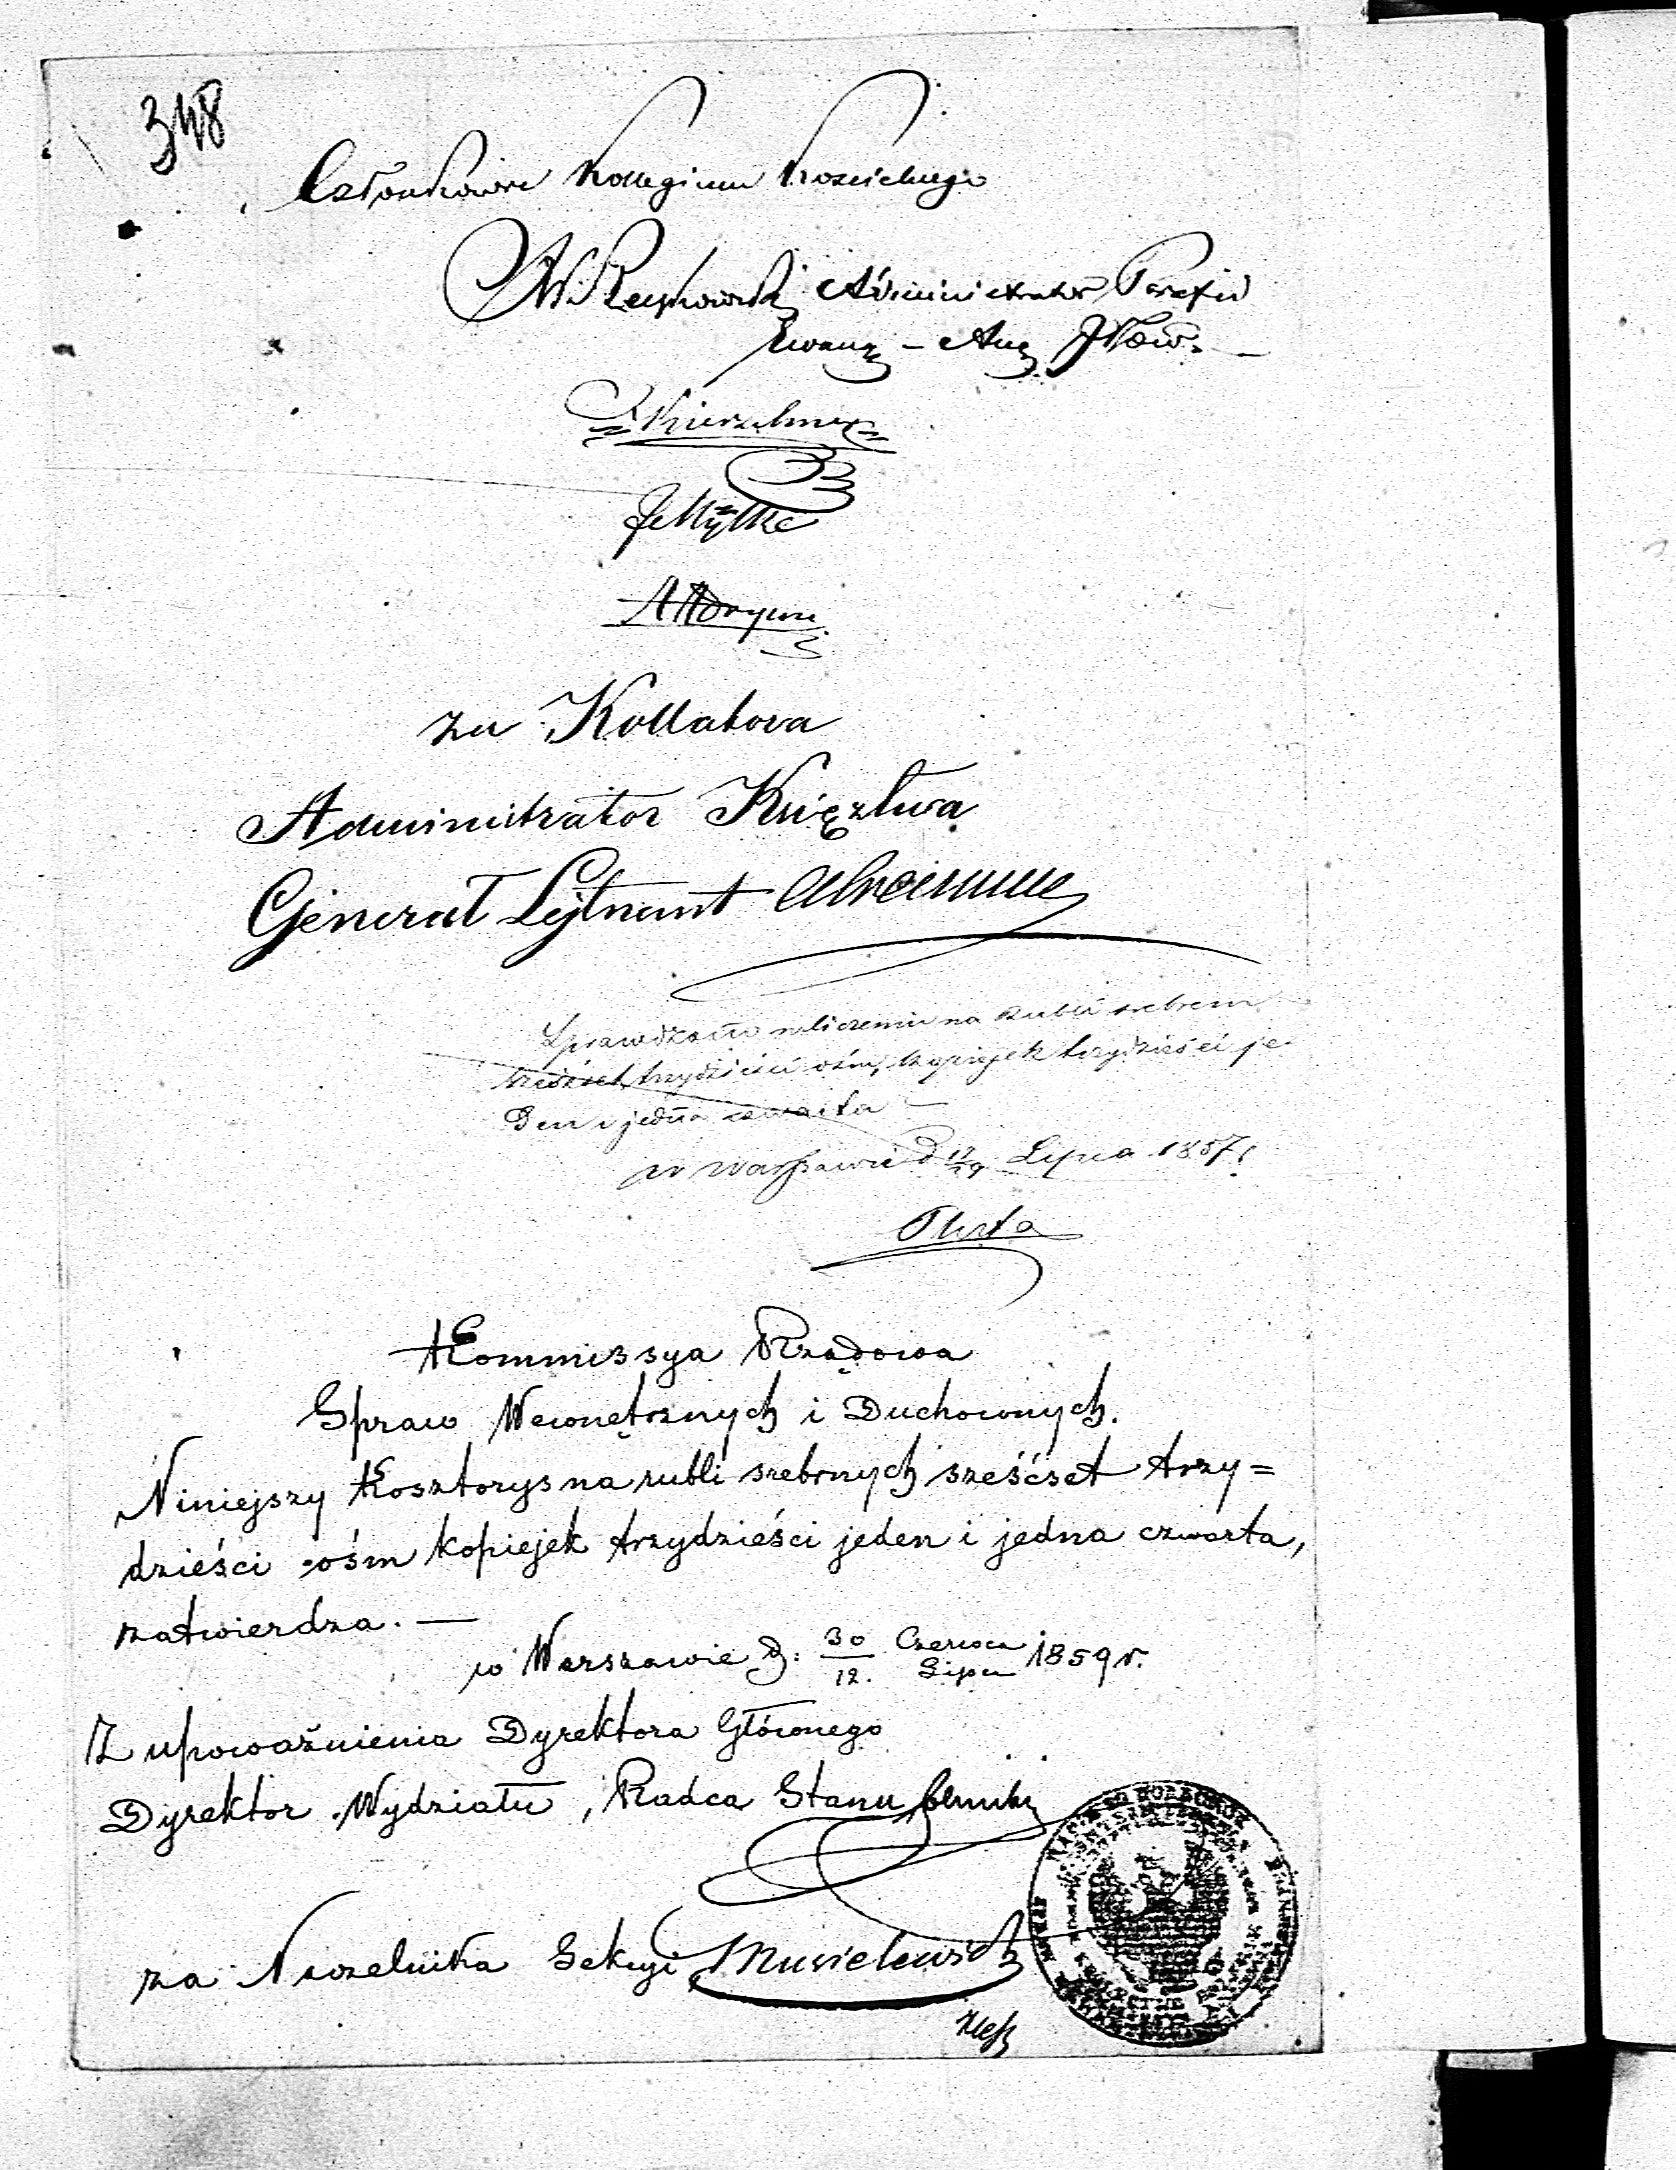 348
Członkowie Kollegium Kościelnego
Administrator Parafii
Ewang – Aug Iłow.
J Mytke
za Kollatora
Administrator Księztwa
Generał Lejtnant
Sprawdzono w liczeniu na rubli srebrem
sześćset trzydzieści ośm, kopiejek trzydzieści je-
den i jedna czwarta –
w Warszawie d 17/29 Lipca 1857 r.
Kommissya Rządowa
Spraw Wewnętrznych i Duchownych.
Niniejszy Kosztorys na rubli srebrnych sześćset trzy=
dzieści ośm kopiejek trzydzieści jeden i jedna czwarta,
zatwierdza. —
w Warszawie d. 30/12. Czerwca/Lipca 1859 r.
Z upoważnienia Dyrektora Głównego
Dyrektor Wydziału, Radca Stanu
za Naczelnika Sekcyi